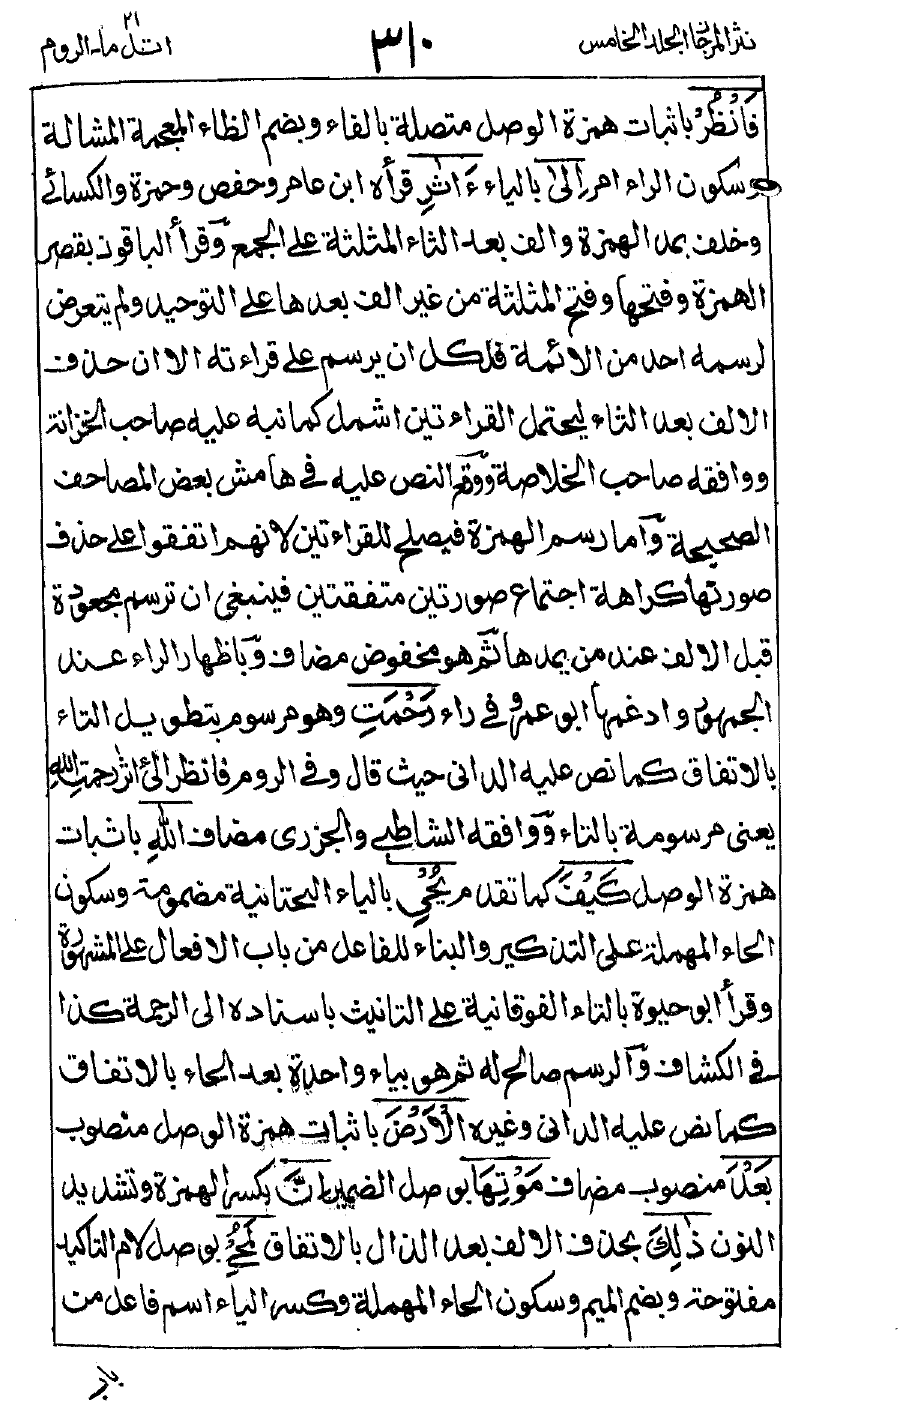 نثر المرجان المجلد الخامس
٣١٠
اتل ما ٢١ الروم
فَانْظُرْ باثبات همزة الوصل متصلة بالفاء وبضم الظاء المعجمة المشالة
وسكون الراء امر اِلىٰ بالياء ءَاثٰرِ قرأه ابن عامر وحفص وحمزة والكسائے
وخلف بمد الهمزة والف بعد الثاء المثلثة على الجمع وقرأ الباقون بقصر
الهمزة وفتحها وفتح المثلثة من غير الف بعدها على التوحيد ولم يتعرض
لرسمه احد من الائمة فلكل ان يرسم على قراءته الا ان حذف
الالف بعد الثاء ليحتمل القراءتين اشمل كما نبه عليه صاحب الخزانة
ووافقه صاحب الخلاصة ووقع النص عليه فى هامش بعض المصاحف
الصحيحة واما رسم الهمزة فيصلح للقراءتين لانهم اتفقوا على حذف
صورتها كراهة اجتماع صورتين متفقتين فينبغى ان ترسم مجعودة
قبل الالف عند من يمدها ثم هو مخفوض مضاف وباظهار الراء عند
الجمهور وادغمها ابو عمرو فى راء رَحْمَتِ وهو مرسوم بتطويل التاء
بالاتفاق كما نص عليه الدانى حيث قال وفى الروم فانظر الى اثر رحمت الله
يعنى مرسومة بالتاء ووافقه الشاطبے والجزرى مضاف اللّٰهِ باثبات
همزة الوصل كَيْفَ كما تقدم يُحْيِ بالياء التحتانية مضمومة وسكون
الحاء المهملة على التذكير والبناء للفاعل من باب الافعال على المشهورة
وقرأ ابو حيوة بالتاء الفوقانية على التانيث باسناده الى الرحمة كذا
فى الكشاف والرسم صالح له ثم هو بياء واحدة بعد الحاء بالاتفاق
كما نص عليه الدانى وغيره الْاَرْضَ باثبات همزة الوصل منصوب
بَعْدَ منصوب مضاف مَوْتِهَا بوصل الضمير اِنَّ بكسر الهمزة وتشديد
النون ذٰلِكَ بحذف الالف بعد الذال بالاتفاق لَمُحْيِ بوصل لام التاكيد
مفتوحة وبضم الميم وسكون الحاء المهملة وكسر الياء اسم فاعل من